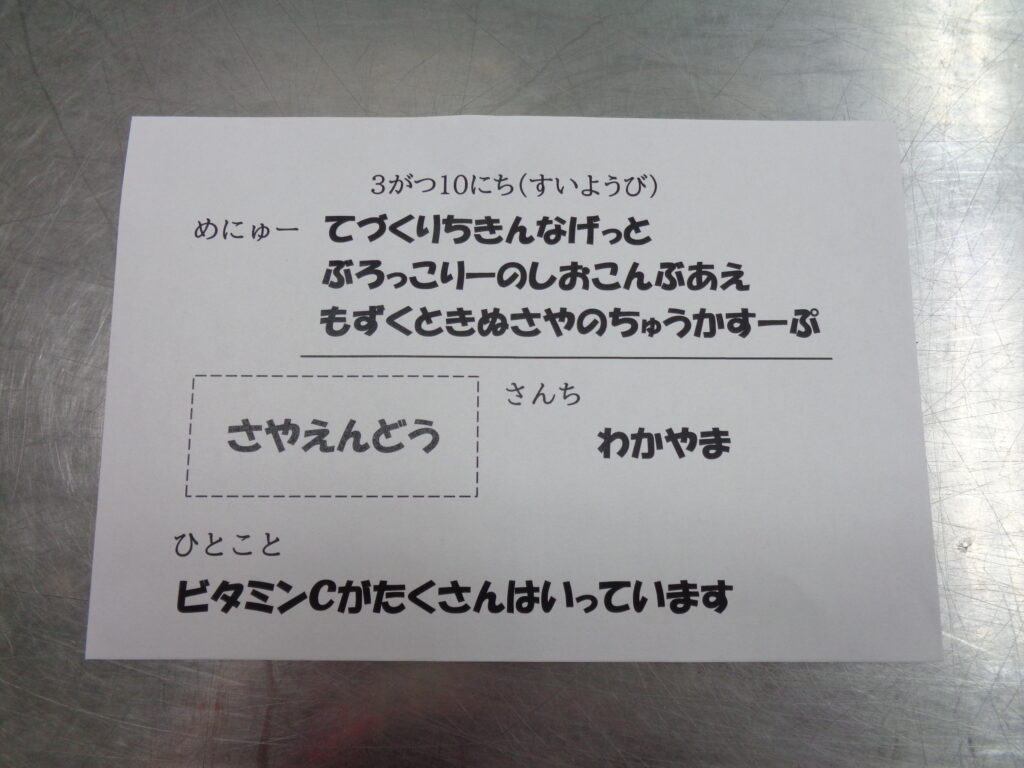 3がつ10にち(すいようび)
めにゅー てづくりちきんなげっと
ぶろっこりーのしおこんぶあえ
もずくときぬさやのちゅうかすーぷ
さんち
さやえんどう わかやま
ひとこと
ビタミンCがたくさんはいっています